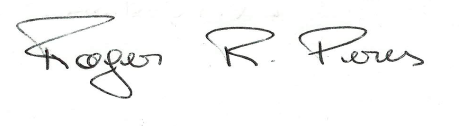 Roger R. Peres